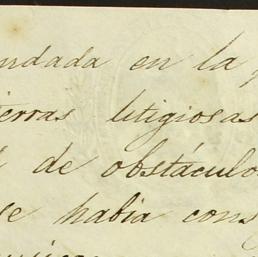 ndada en la
ierras litigiosas
de obstáculo
se habia cons